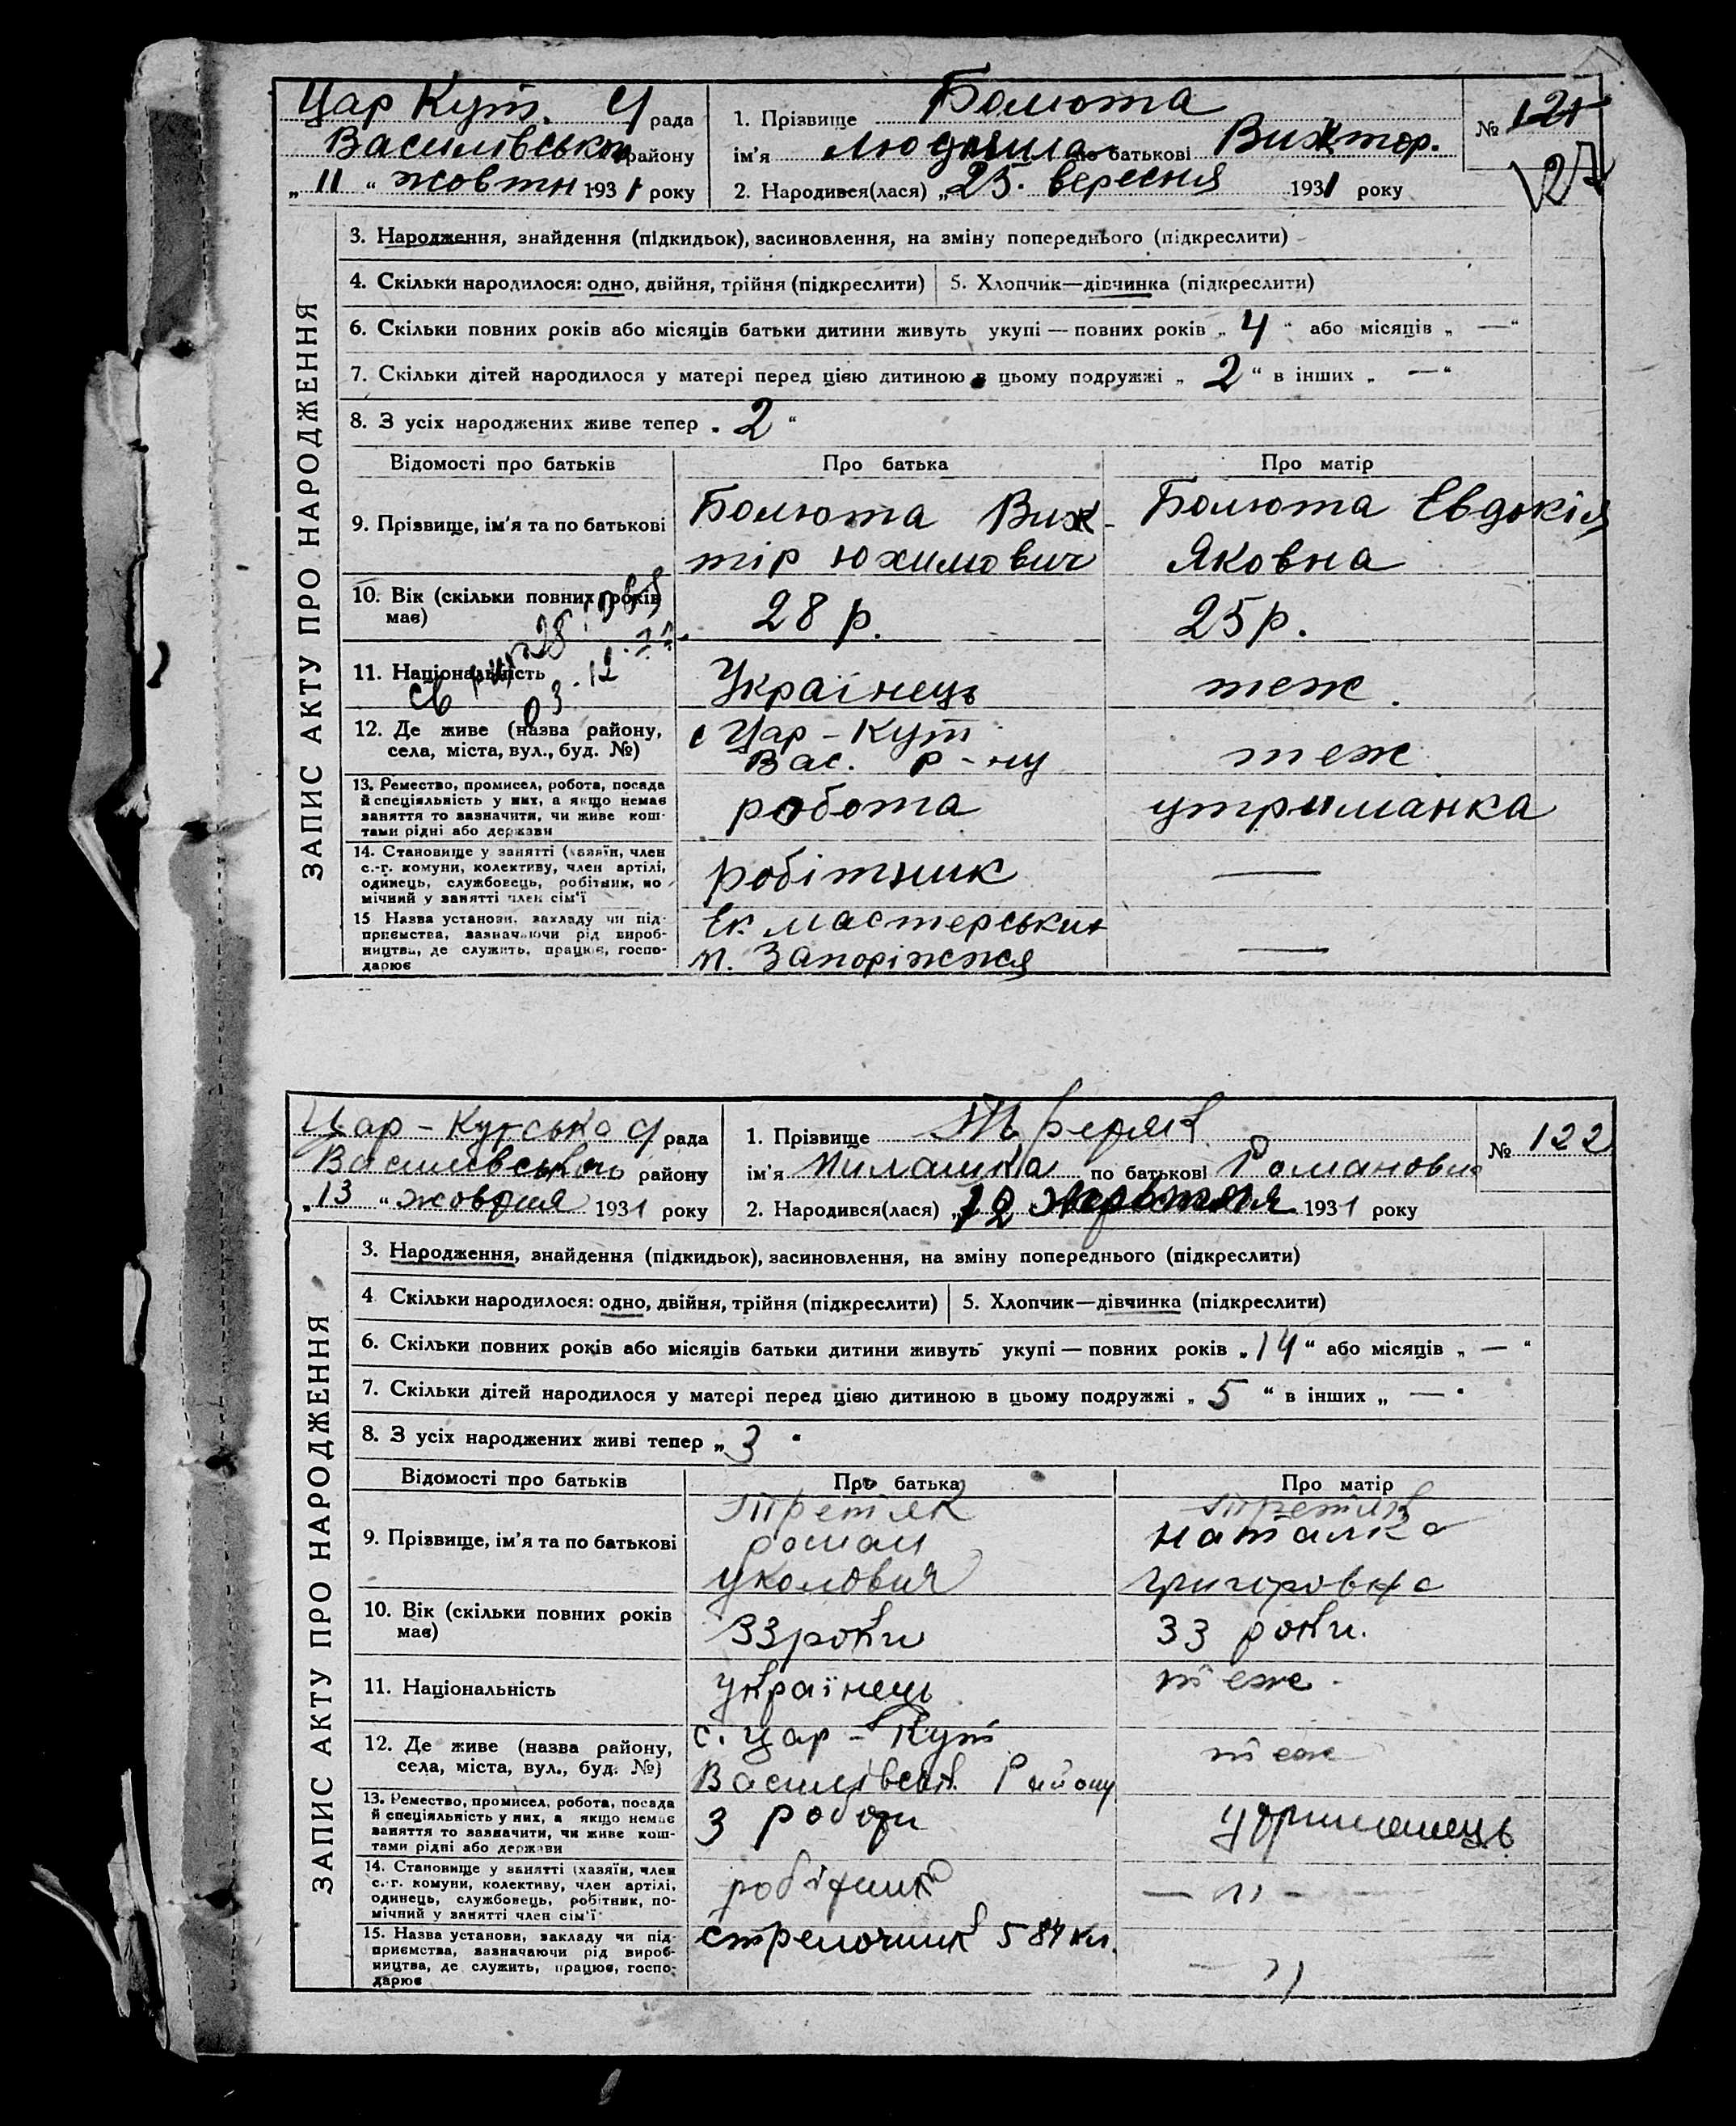 Цар Кут. с/рада
Василівськ району
„11“ жовтн 1931 року
1. Прізвище Болюта
ім'я Людмила по батькові Виктор.
2. Народився(лася) „25. вересня 1931 року
№ 121
127
ЗАПИС АКТУ ПРО НАРОДЖЕННЯ
3. Народження, знайдення (підкидьок), засиновлення, на зміну попереднього (підкреслити)
4. Скільки народилося: одно, двійня, трійня (підкреслити) 5. Хлопчик—дівчинка (підкреслити)
6. Скільки повних років або місяців батьки дитини живуть укупі — повних років „4“ або місяців „—“
7. Скільки дітей народилося у матері перед цією дитиною в цьому подружжі „2“ в інших „—“
8. З усіх народжених живе тепер „2“
Відомості про батьків Про батька Про матір
9. Прізвище, ім'я та по батькові
Болюта Вик-
тір Юхимович
Болюта Євдокія
Яковна
10. Вік (скільки повних років
має)
28 р.
25 р.
11. Національність
Українець
теж.
12. Де живе (назва району,
села, міста, вул., буд. №)
с Цар-Кут
Вас. р-ну
теж
13. Ремество, промисел, робота, посада
й спеціяльність у них, а якщо немає
заняття то зазначити, чи живе кош-
тами рідні або держави
робота
утриманка
14. Становище у занятті (хазяїн, член
с.-г. комуни, колективу, член артілі,
одинець, службовець, робітник, по
мічний у занятті член сім'ї
робітник
—
15 Назва установи, закладу чи під-
приємства, зазначаючи рід вироб-
ництва, де служить, працює, госпо-
дарює
мастерськи
м. Запоріжжя
—
Цар-Кутська с/рада
Василівського району
„13“ жовтня 1931 року
1. Прізвище Третяк
ім'я Милашка по батькові Романовна
2. Народився(лася) „12 1931 року
№ 122
ЗАПИС АКТУ ПРО НАРОДЖЕННЯ
3. Народження, знайдення (підкидьок), засиновлення, на зміну попереднього (підкреслити)
4 Скільки народилося: одно, двійня, трійня (підкреслити) 5. Хлопчик—дівчинка (підкреслити)
6. Скільки повних років або місяців батьки дитини живуть укупі — повних років „14“ або місяців „—“
7. Скільки дітей народилося у матері перед цією дитиною в цьому подружжі „5“ в інших „—“
8. З усіх народжених живі тепер „3“
Відомості про батьків Про батька Про матір
9. Прізвище, ім'я та по батькові
Третяк
роман
уколович
Третяк
наталка
григоровна
10. Вік (скільки повних років
має)
33 роки
33 роки.
11. Національність
українець
теже.
12. Де живе (назва району,
села, міста, вул., буд. №)
с. цар-Кут
Василівськ. Району
теж
13. Ремество, промисел, робота, посада
й спеціяльність у них, а якщо немає
заняття то зазначити, чи живе кош-
тами рідні або держави
з роботи
утриманець
14. Становище у занятті (хазяїн, член
с.-г. комуни, колективу, член артілі,
одинець, службовець, робітник, по-
мічний у занятті член сім'ї
робітник
— „ —
15. Назва установи, закладу чи під-
приємства, зазначаючи рід вироб-
ництва, де служить, працює, госпо-
дарює
стрелочник 584 км.
— „